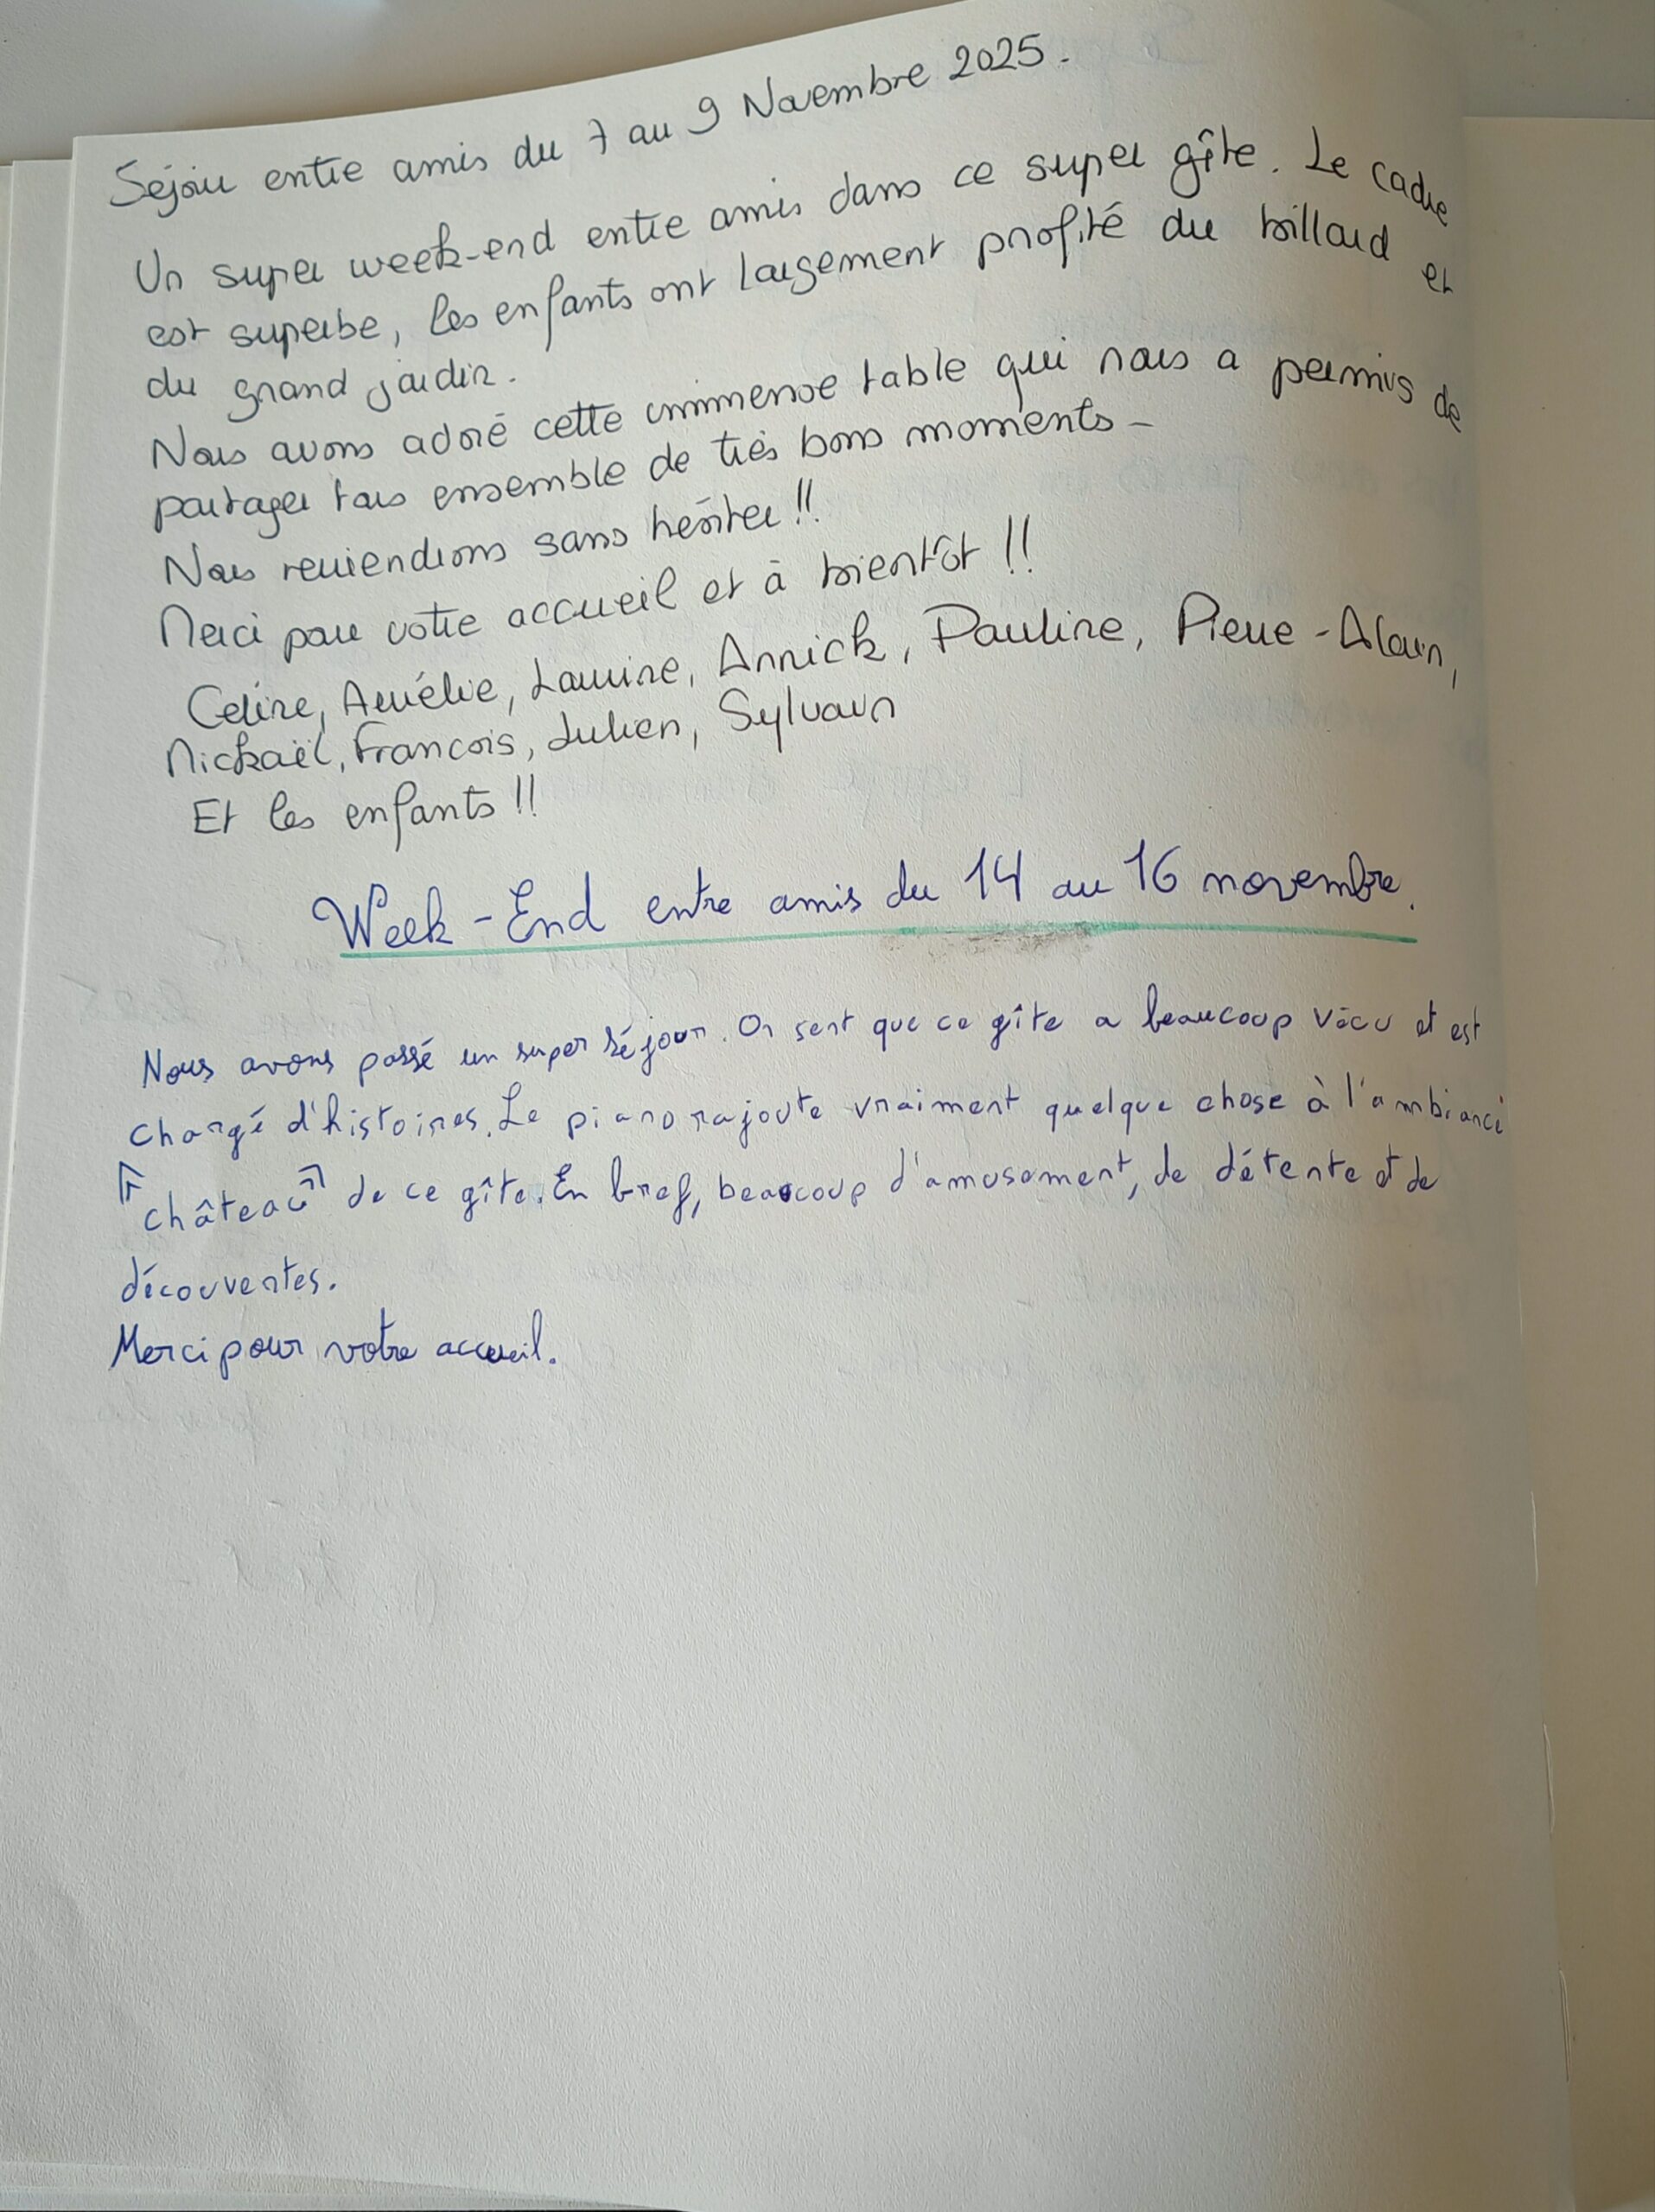 Séjour entre amis du 7 au 9 Novembre 2025.
Un super week-end entre amis dans ce super gîte. Le cadre
est superbe, les enfants ont largement profité du billard et
du grand jardin.
Nous avons adoré cette immense table qui nous a permis de
partager tous ensemble de très bons moments -
Nous reviendrons sans hésiter !!
Merci pour votre accueil et à bientôt !!
Celine, Aurélie, Laurine, Annick, Pauline, Pierre-Alain,
Mickaël, Francois, Julien, Sylvain
Et les enfants !!
Week-End entre amis du 14 au 16 novembre.
Nous avons passé un super séjour. On sent que ce gîte a beaucoup vécu et est
chargé d'histoires. Le piano rajoute vraiment quelque chose à l'ambiance
"château" de ce gîte. En bref, beaucoup d'amusement, de détente et de
découvertes.
Merci pour votre accueil.